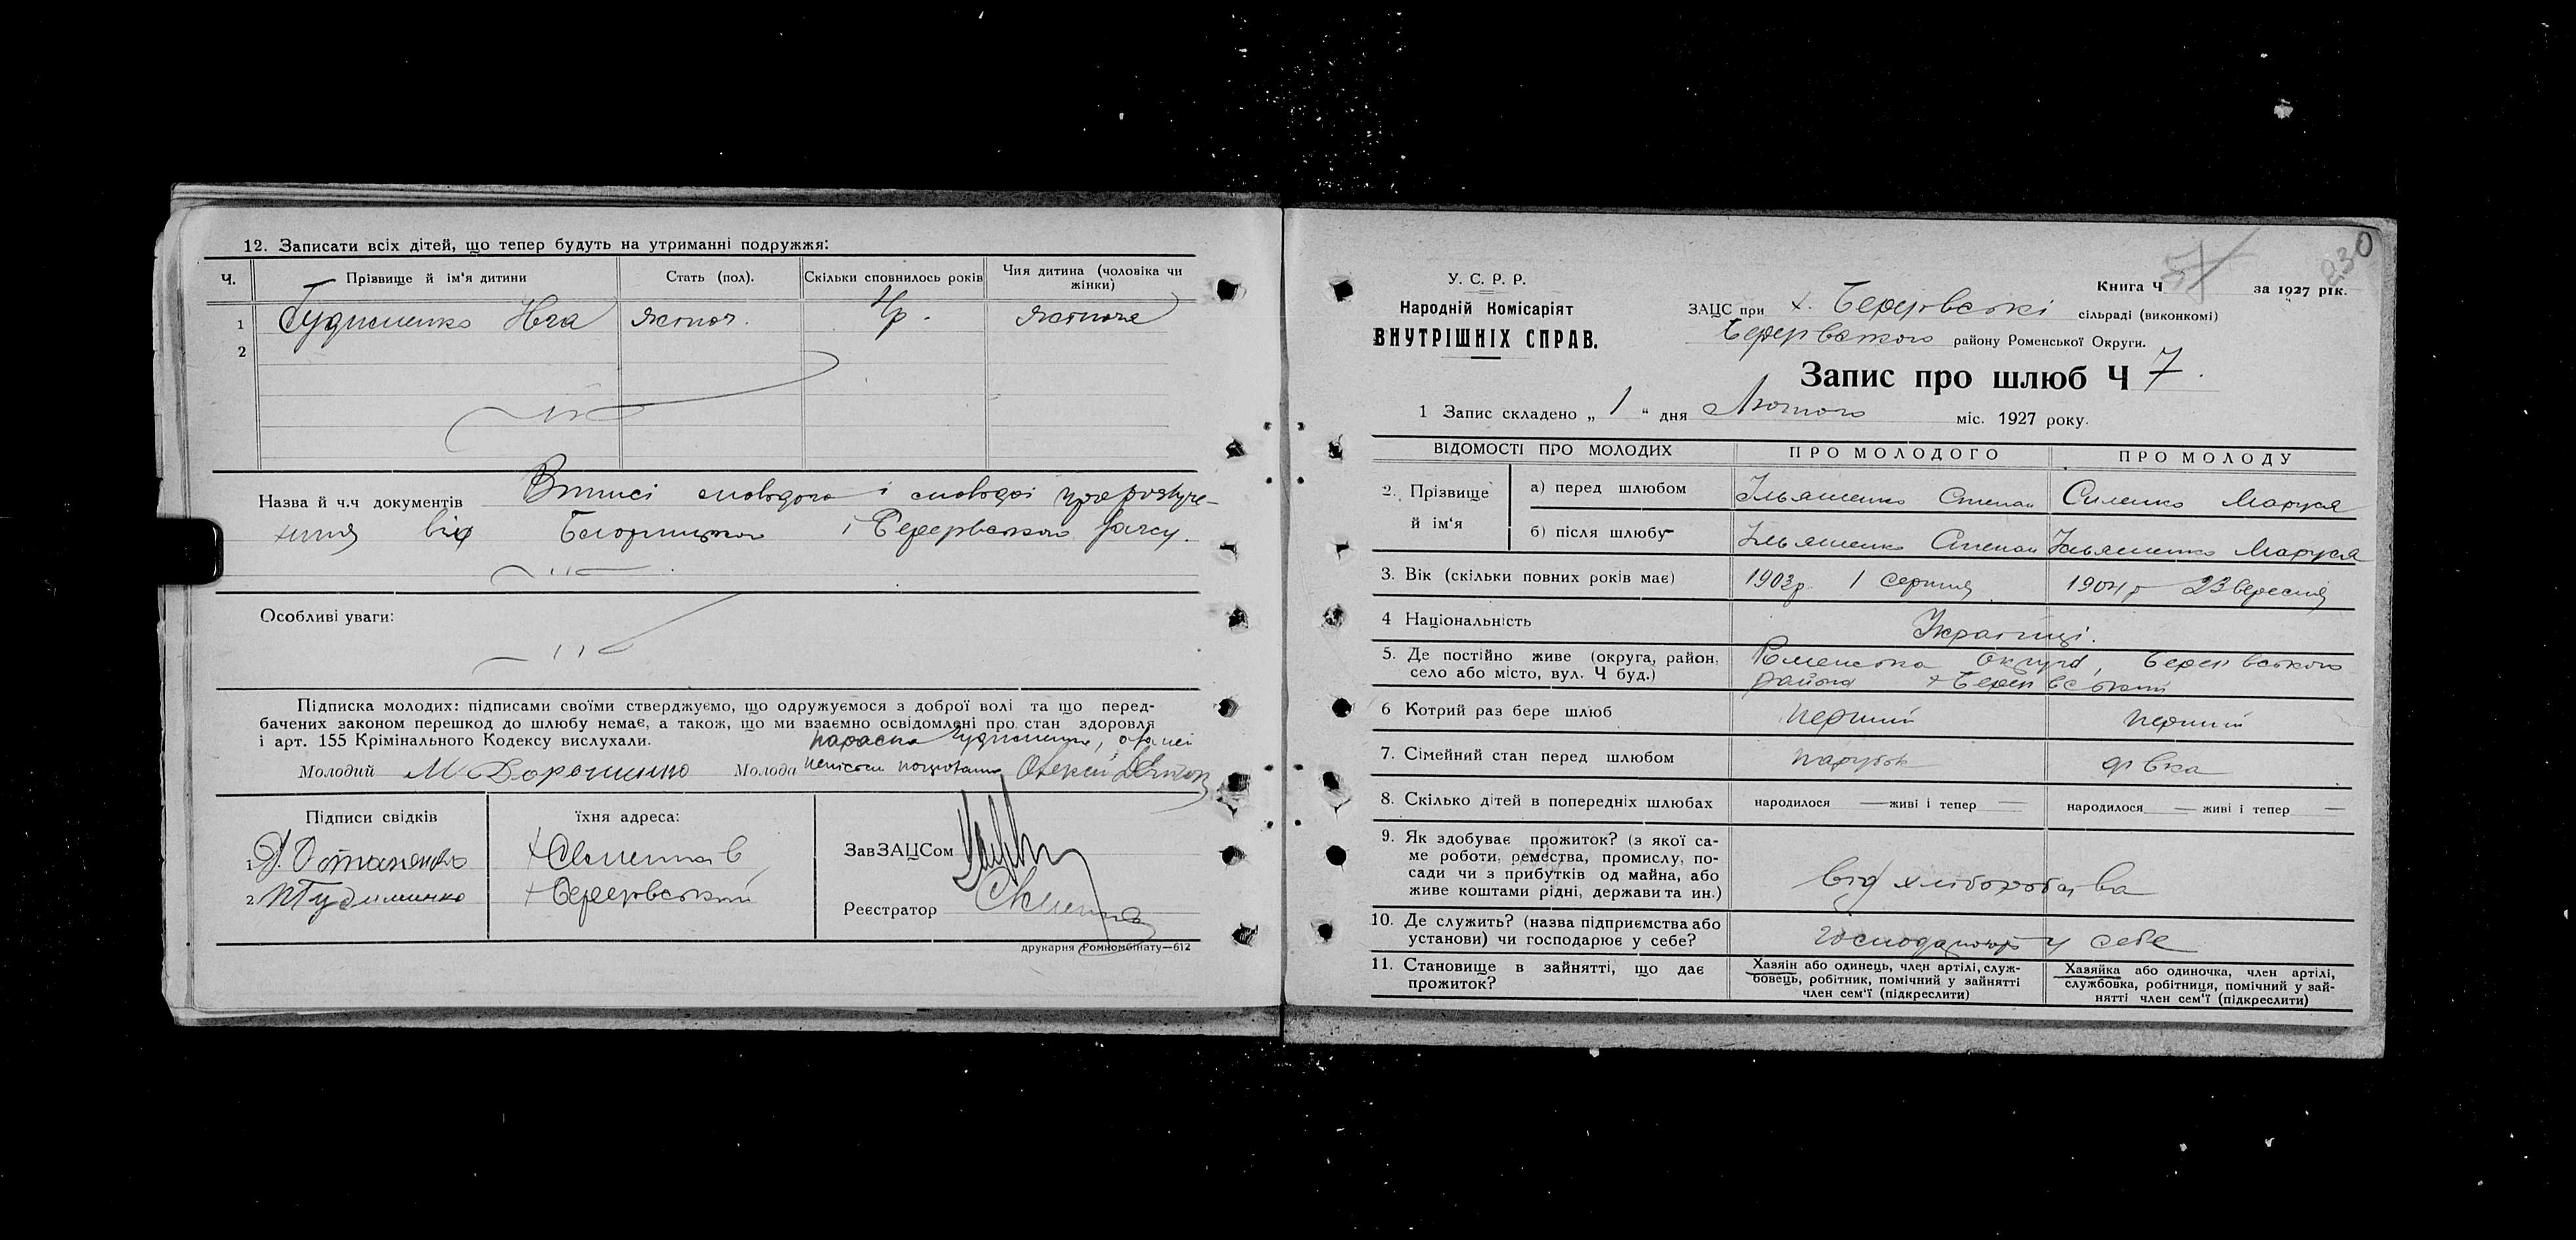 12. Записати всіх дітей, що тепер будуть на утриманні подружжя:
Ч. Прізвище й ім'я дитини Стать (пол). Скільки сповнилось років Чия дитина (чоловіка чи жінки)
1 Гудименко жіноч. 4 р. жіноча
2
Назва й ч.ч документів Виписі молодого і молодої про
від і загсу.
Особливі уваги:
Підписка молодих: підписами своїми стверджуємо, що одружуємося з доброї волі та що перед-
бачених законом перешкод до шлюбу немає, а також, що ми взаємно освідомлені про стан здоровля
і арт. 155 Крімінального Кодексу вислухали. параска Гудименко, а за неї
Молодий М Дорошенко Молода
Підписи свідків їхня адреса:
1
2 Гудименко
ЗавЗАЦСом
Реєстратор
друкарня Ромкомбінату—612
230
У. С. Р. Р.
Народній Комісаріят
ВНУТРІШНІХ СПРАВ.
Книга Ч 57 за 1927 рік.
ЗАЦС при х. сільраді (виконкомі)
району Роменської Округи.
Запис про шлюб Ч 7.
1 Запис складено „ 1 “ дня Лютого міс. 1927 року.
ВІДОМОСТІ ПРО МОЛОДИХ ПРО МОЛОДОГО ПРО МОЛОДУ
2. Прізвище й ім'я а) перед шлюбом Ільяшенко Степан Силенко Маруся
б) після шлюбу Ільяшенко Степан Ільяшенко Маруся
3. Вік (скільки повних років має) 1903р. 1 серпня 1904 р 23 вересня
4 Національність Українці.
5. Де постійно живе (округа, район, Роменська Округа,
село або місто, вул. Ч буд.) района
6 Котрий раз бере шлюб перший перший
7. Сімейний стан перед шлюбом парубок дівка
8. Скілько дітей в попередніх шлюбах народилося — живі і тепер — народилося — живі і тепер —
9. Як здобуває прожиток? (з якої са-
ме роботи, ремества, промислу, по-
сади чи з прибутків од майна, або
живе коштами рідні, держави та ин.) від хліборобства
10. Де служить? (назва підприємства або
установи) чи господарює у себе? господарюють у себе
11. Становище в зайнятті, що дає
прожиток?
Хазяїн або одинець, член артілі, служ-
бовець, робітник, помічний у зайнятті
член сем'ї (підкреслити)
Хазяйка або одиночка, член артілі,
службовка, робітниця, помічний у зай-
нятті член сем'ї (підкреслити)